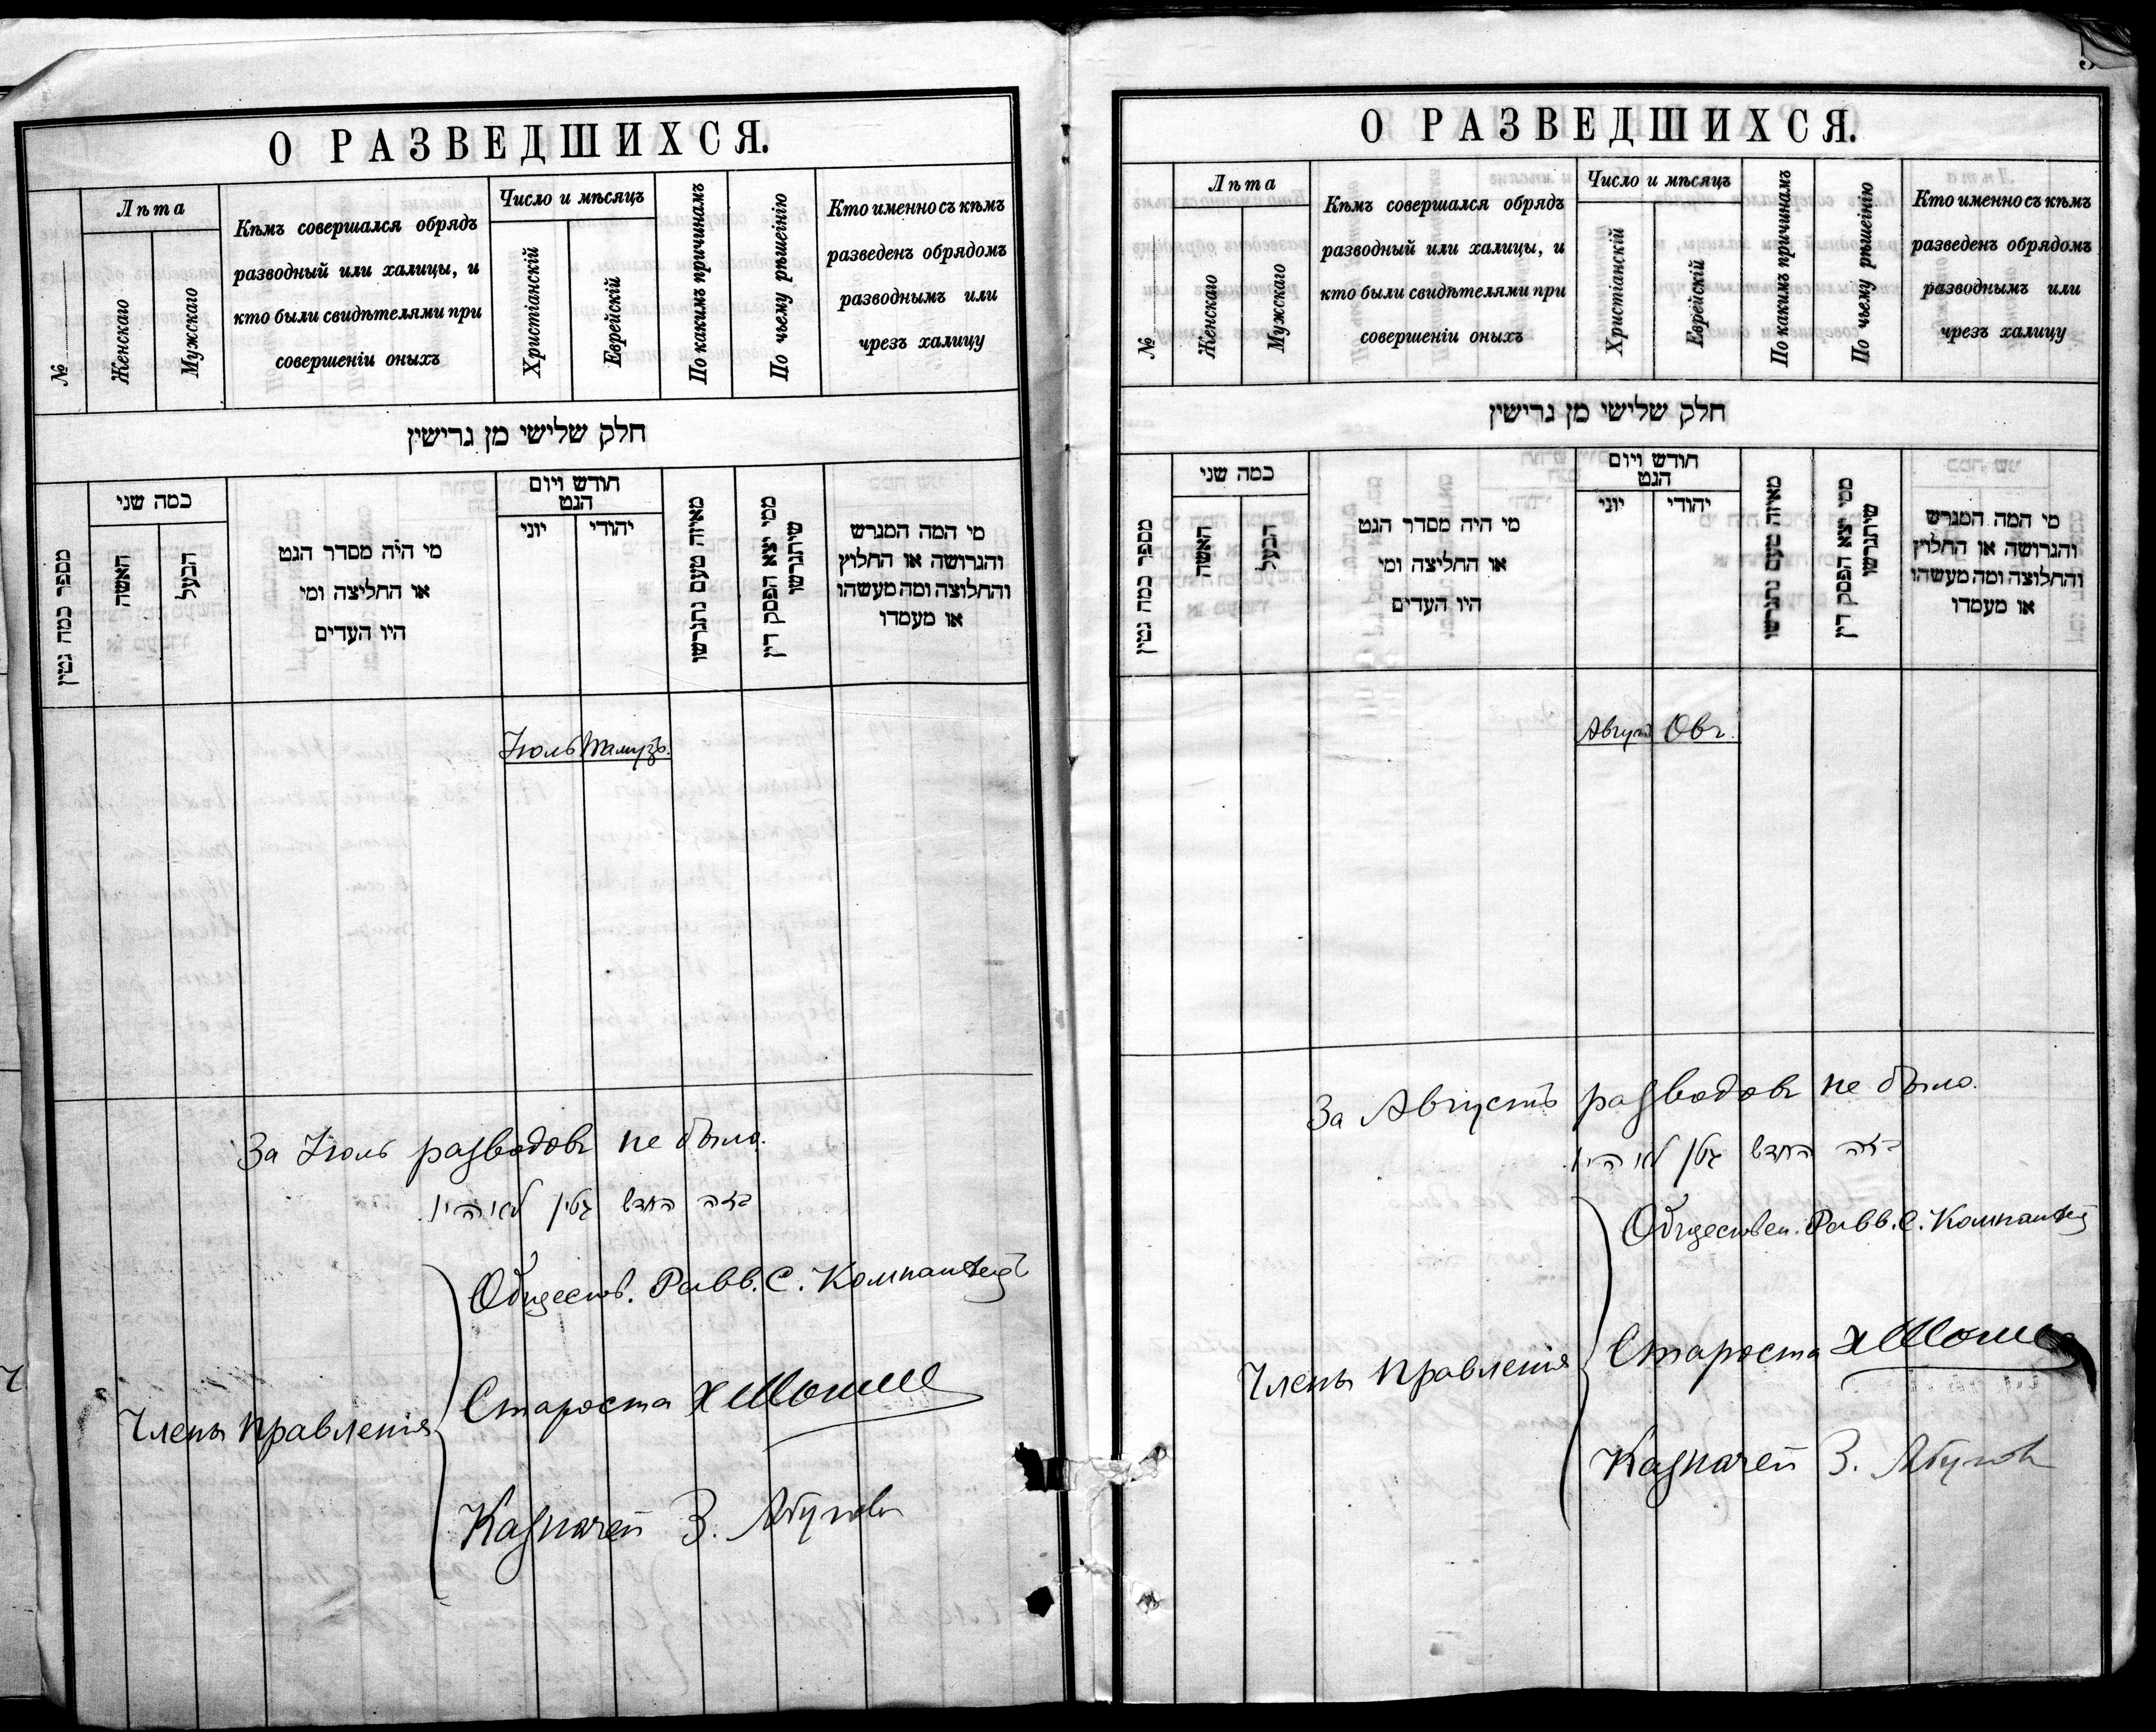 О РАЗВЕДШИХСЯ.
№
Лѣта
Женскаго
Мужскаго
Кѣмъ совершался обрядъ
разводный или халицы, и
кто были свидѣтелями при
совершеніи оныхъ
Число и мѣсяцъ
Христіанскій
Еврейскій
По какимъ причинамъ
По чьему рѣшенію
Кто именно съ кѣмъ
разведенъ обрядомъ
разводнымъ или
чрезъ халицу
חלק שלישי מן גרישין
מספר כמה גטין
כמה שני
האשה
הבעל
מי היה מסדר הגט
או החליצה ומי
היו העדים
חודש ויום
הגט
יוני
יהודי
מאיזה טעם נתגרשו
ממי יצא הפסק דין
שיתגרשו
מי המה המגרש
והגרושה או החלוץ
והחלוצה ומה מעשהו
או מעמדו
Іюль Тамузъ.
За Іюль разводовъ не было.
בזה החדש גטין לא היו.
Обществ. Равв. С. Компанѣецъ
Члены Правленія
Староста
Казначей З.
О РАЗВЕДШИХСЯ.
№
Лѣта
Женскаго
Мужскаго
Кѣмъ совершался обрядъ
разводный или халицы, и
кто были свидѣтелями при
совершеніи оныхъ
Число и мѣсяцъ
Христіанскій
Еврейскій
По какимъ причинамъ
По чьему рѣшенію
Кто именно съ кѣмъ
разведенъ обрядомъ
разводнымъ или
чрезъ халицу
חלק שלישי מן גרישין
מספר כמה גטין
כמה שני
האשה
הבעל
מי היה מסדר הגט
או החליצה ומי
היו העדים
חודש ויום
הגט
יוני
יהודי
מאיזה טעם נתגרשו
ממי יצא הפסק דין
שיתגרשו
מי המה המגרש
והגרושה או החלוץ
והחלוצה ומה מעשהו
או מעמדו
Августъ Овъ.
За Августъ разводовъ не было.
בזה החדש גטין לא היו.
Обществен. Равв. С. Компанѣец
Члены Правленія
Староста
Казначей З.